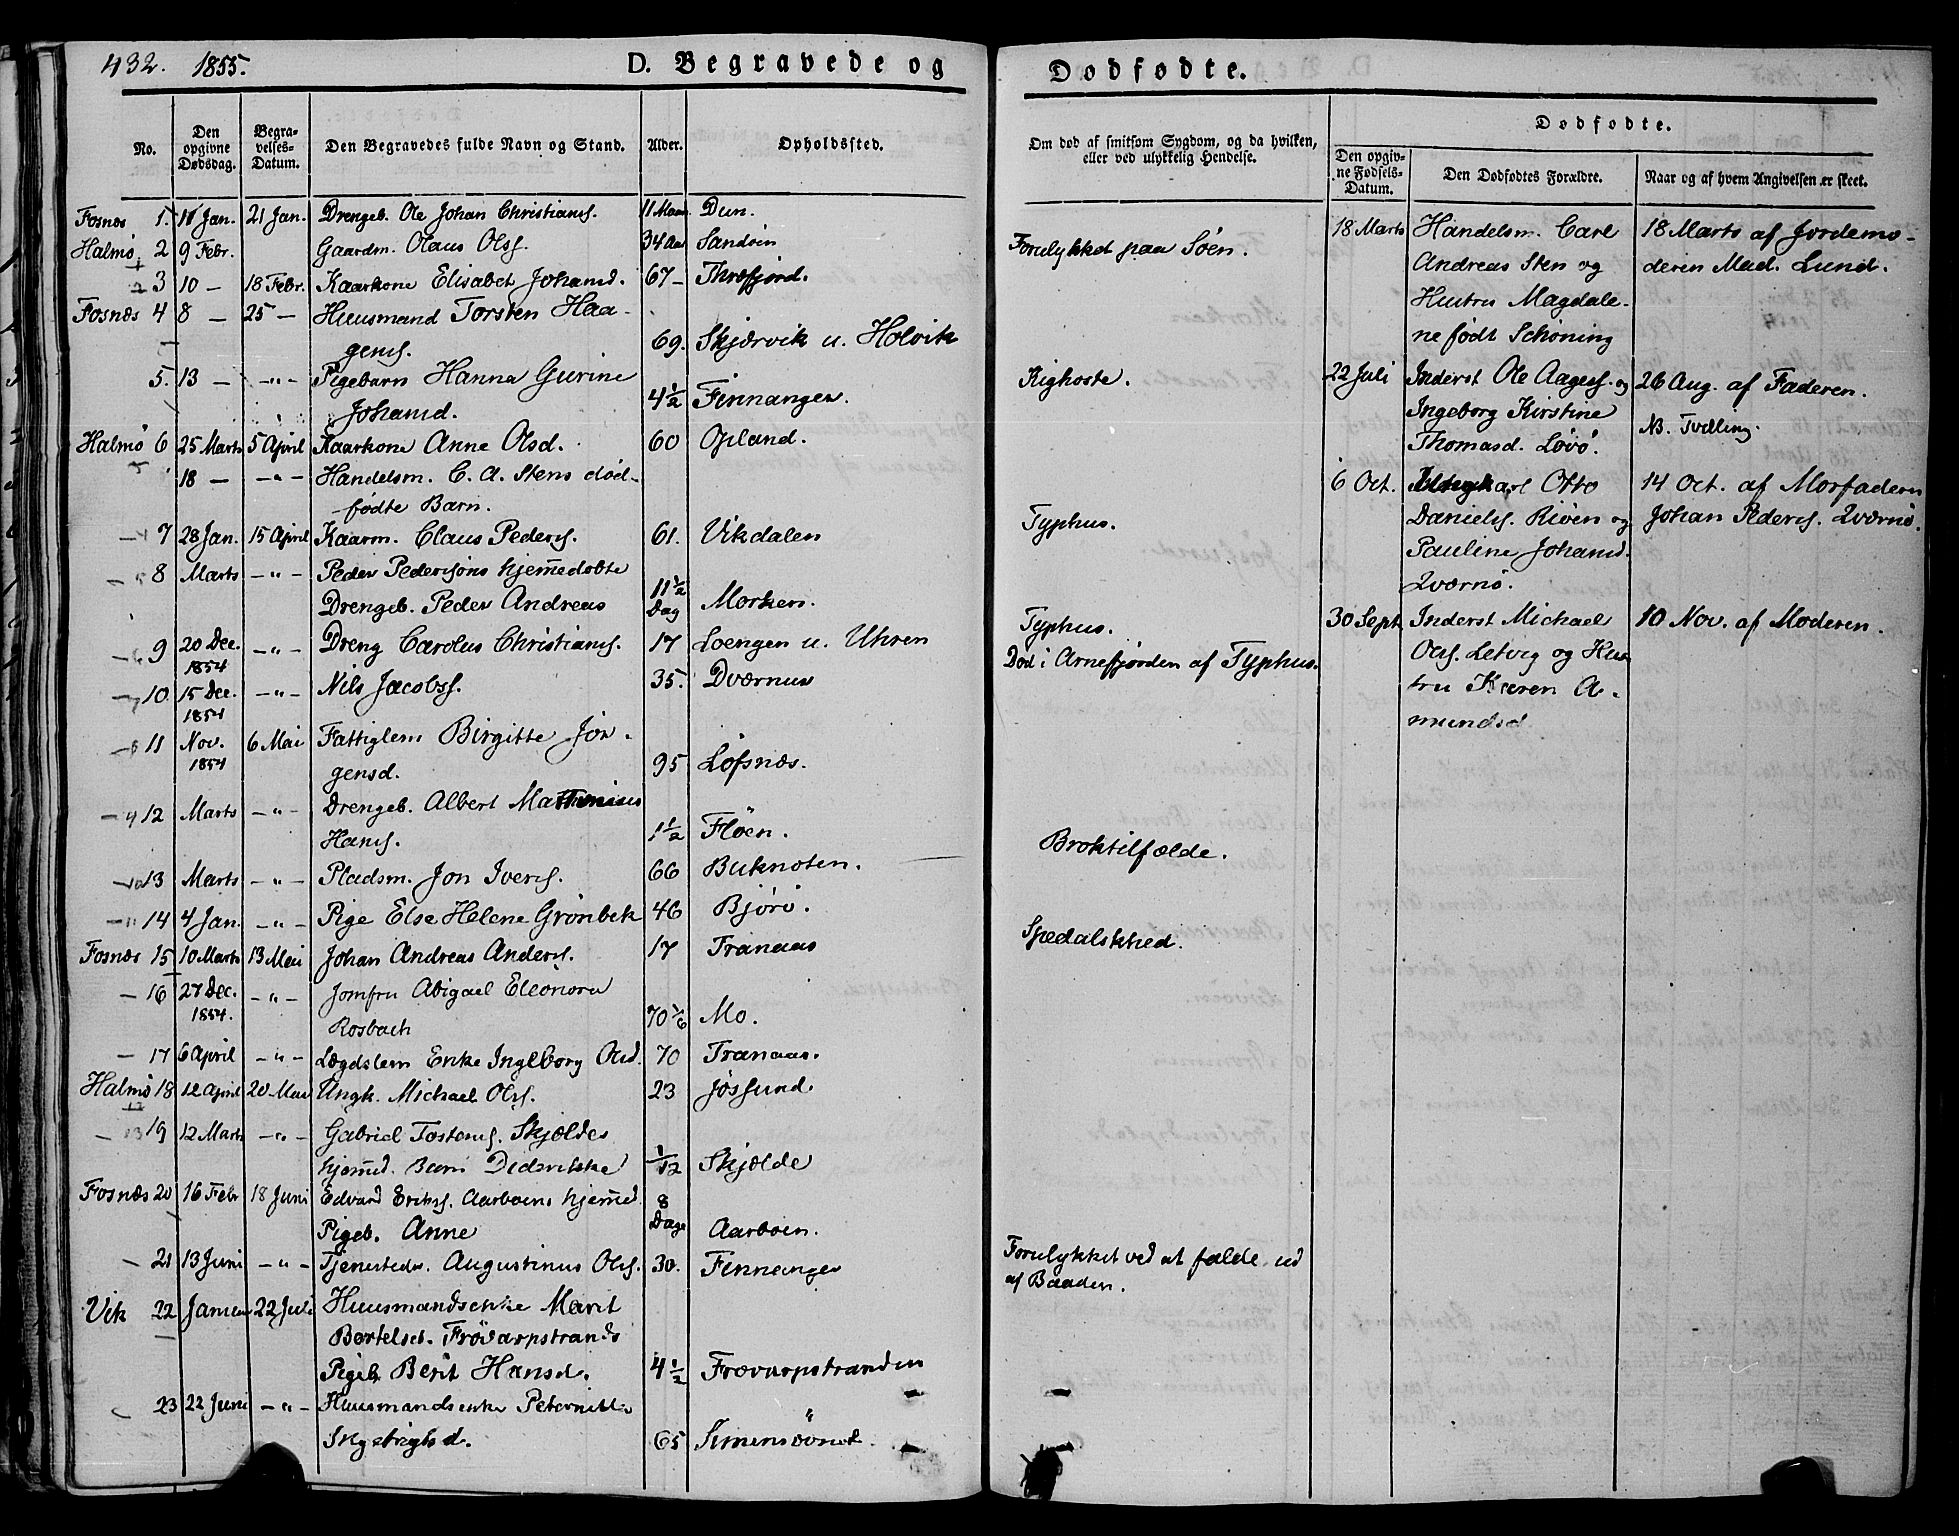 432. 1855.
D. Begravede og Dødfødte.
No.
Den opgivne Dødsdag.
Begravelses-Datum.
Den Begravedes fulde Navn og Stand.
Alder.
Opholdssted.
Om død af smitsom Sygdom, og da hvilken, eller ved ulykkelig Hendelse.
Dødfødte.
Den opgivne Fødsels-Datum.
Den Dødfødtes Forældre.
Naar og af hvem Angivelsen er skeet.
Fosnæs 1. 11 Jan. 21 Jan. Drengeb. Ole Johan Christians. 11 Maan. Dun.
Halmö 2 9 Febr. Gaardm. Olaus Olss. 34 Aar Sandöin Forulykket paa Söen.
3 10 – 18 Febr. Kaarkone Elisabet Johansd. 67 – Thrøfjord.
Fosnæs 4 8 – 25 – Huusmand Torsten Haa-
gens. 69. Skjærvik u. Holvik
5. 13 – –"– Pigebarn Hanna Gurine
Johansd. 4 1/2 Finnanger. Kighoste.
Halmö 6 25 Marts 5 April Kaarkone Anne Olsd. 60 Opland.
18 – –"– Handelsm. C. A. Stens död-
födte Barn.
7 28 Jan. 15 April Kaarm. Claus Peders. 61. Vikdalen Typhus.
8 Marts –"– Peder Pedersöns hjemmedöbte
Drengeb. Peder Andreas 11 1/2 Dag Morken.
9 20 Dec. 1854 –"– Dreng Carolus Christians. 17 Loengen u. Uhren Typhus.
10. 15 Dec. 1854 –"– Nils Jacobss. 35. Dværnes Död i Arnefjorden af Typhus.
11 Nov. 1854 6 Mai Fattiglem Birgitte Jör-
gensd. 95 Löfsnæs.
12 Marts –"– Drengeb. Albert Mathenius
Hans. 1 1/2 Flöen.
13 Marts –"– Pladsm. Jon Ivers. 66 Buknoten. Broktilfælde.
14 4 Jan. –"– Pige Else Helene Grönbek 46 Björö. Spedalskhed.
Fosnæs 15 10 Marts 13 Mai Johan Andreas Anders. 17 Tranaas
16 27 Dec. 1854. –"– Jomfru Abigael Eleonora
Rosbach 70 1/6 Mo.
17 6 April –"– Lægdslem Enke Ingeborg Olsd. 70 Tranaas.
Halmö 18 12 April 20 Mai Ungk. Michael Olss. 23 Jössund
19 12 Marts –"– Gabriel Tostens. Skjældes
hjemmed. Barn Diderikke 1/12 Skjælde
Fosnæs 20 16 Febr 18 Juni Edvard Eriks. Aarboens hjemmed.
Pigeb. Anne 8 Dage Aarboen.
21 13 Juni –"– Tjenestedr. Augustinus Olss. 30. Finnanger Forulykket ved at falde ud
af Baaden.
Vik 22 Januar 22 Juli Huusmandsenke Marit
Bertelsd. Frövarpstrands
Pigeb. Berit Hansd. 4 1/2 Frøvarpstranden
23 22 Juni –"– Huusmandsenke Peternille
Ingebrigtsd. 65
18 Marts Handelsm. Carl 18 Marts af Jordemo-
Andreas Sten og deren Mad. Lund.
Hustru Magdale-
ne födt Schöning
22 Juli Inderst Ole Aagess. og 26 Aug. af Faderen.
Ingeborg Kirstine NB. Tvilling.
Thomasd. Lövö.
6 Oct. Otto 14 Oct. af Morfaderen
Daniels. Riöen og Johan Peders. Qværnö.
Pauline Johansd.
Qværnö.
30 Sept. Inderst Michael 10 Nov. af Moderen.
Ols. Letvig og Hus
tru Karen A-
mundsd.